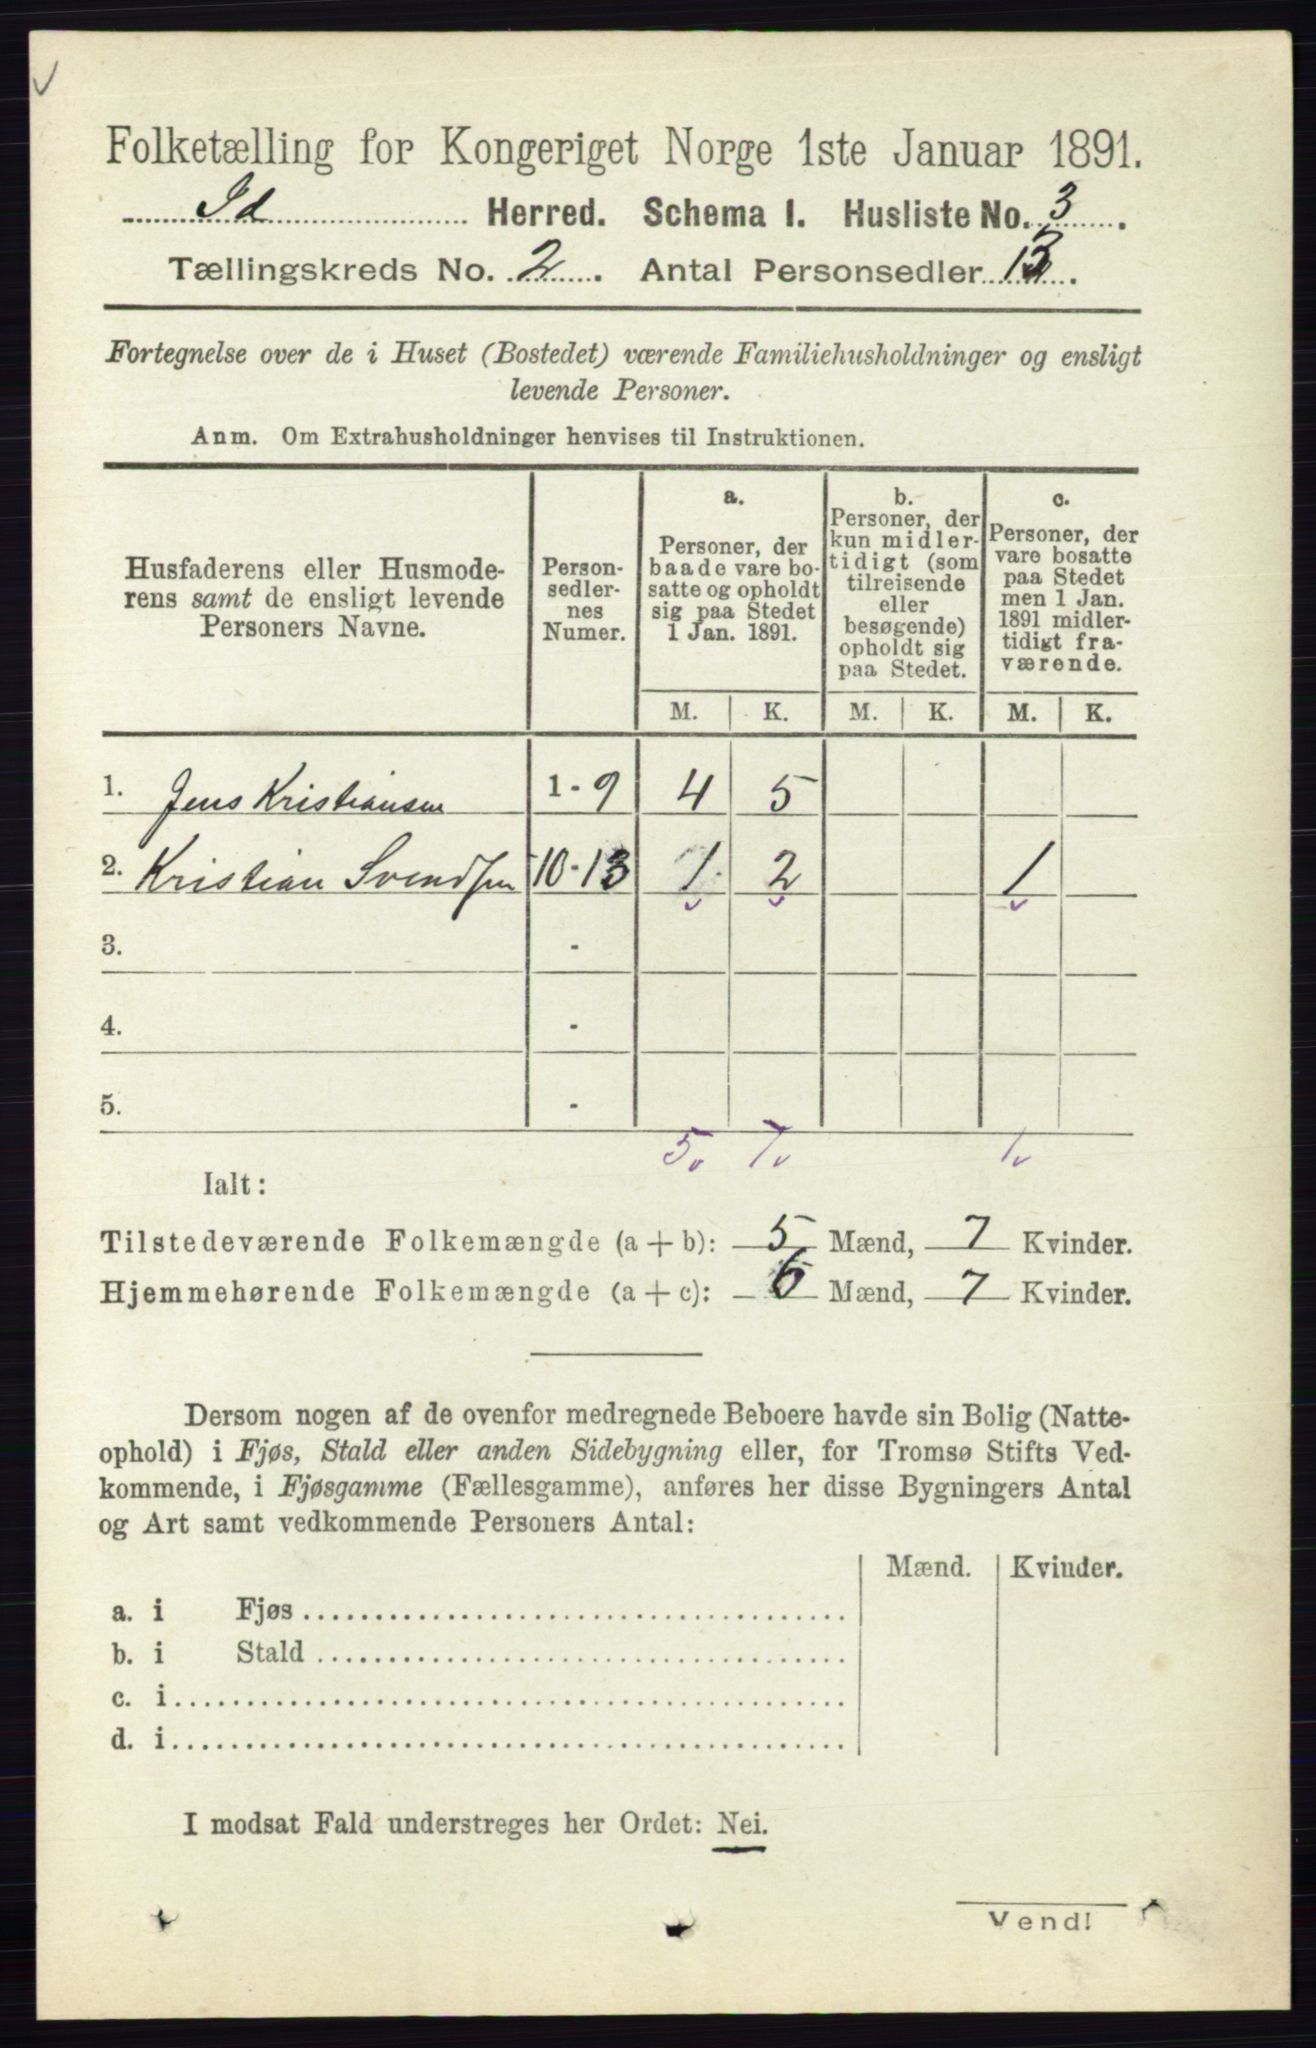 Folketælling for Kongeriget Norge 1ste Januar 1891.
Id Herred. Schema I. Husliste No. 3.
Tællingskreds No. 2. Antal Personsedler 13.
Fortegnelse over de i Huset (Bostedet) værende Familiehusholdninger og ensligt
levende Personer.
Anm. Om Extrahusholdninger henvises til Instruktionen.
Husfaderens eller Husmode-
rens samt de ensligt levende
Personers Navne.
Person-
sedler-
nes
Numer.
a.
Personer, der
baade vare bo-
satte og opholdt
sig paa Stedet
1 Jan. 1891.
b.
Personer, der
kun midler-
tidigt (som
tilreisende
eller
besøgende)
opholdt sig
paa Stedet.
c.
Personer, der
vare bosatte
paa Stedet
men 1 Jan.
1891 midler-
tidigt fra-
værende.
M. K. M. K. M. K.
1. Jens Kristiansen 1-9 4 5
2. Kristian Svendsen 10-13 1 2 1
3. -
4. -
5. -
5 7 1
Ialt:
Tilstedeværende Folkemængde (a+b): 5 Mænd, 7 Kvinder.
Hjemmehørende Folkemængde (a+c): 6 Mænd, 7 Kvinder.
Dersom nogen af de ovenfor medregnede Beboere havde sin Bolig (Natte-
ophold) i Fjøs, Stald eller anden Sidebygning eller, for Tromsø Stifts Ved-
kommende, i Fjøsgamme (Fællesgamme), anføres her disse Bygningers Antal
og Art samt vedkommende Personers Antal:
Mænd. Kvinder.
a. i Fjøs
b. i Stald
c. i
d. i
I modsat Fald understreges her Ordet: Nei.
Vend!